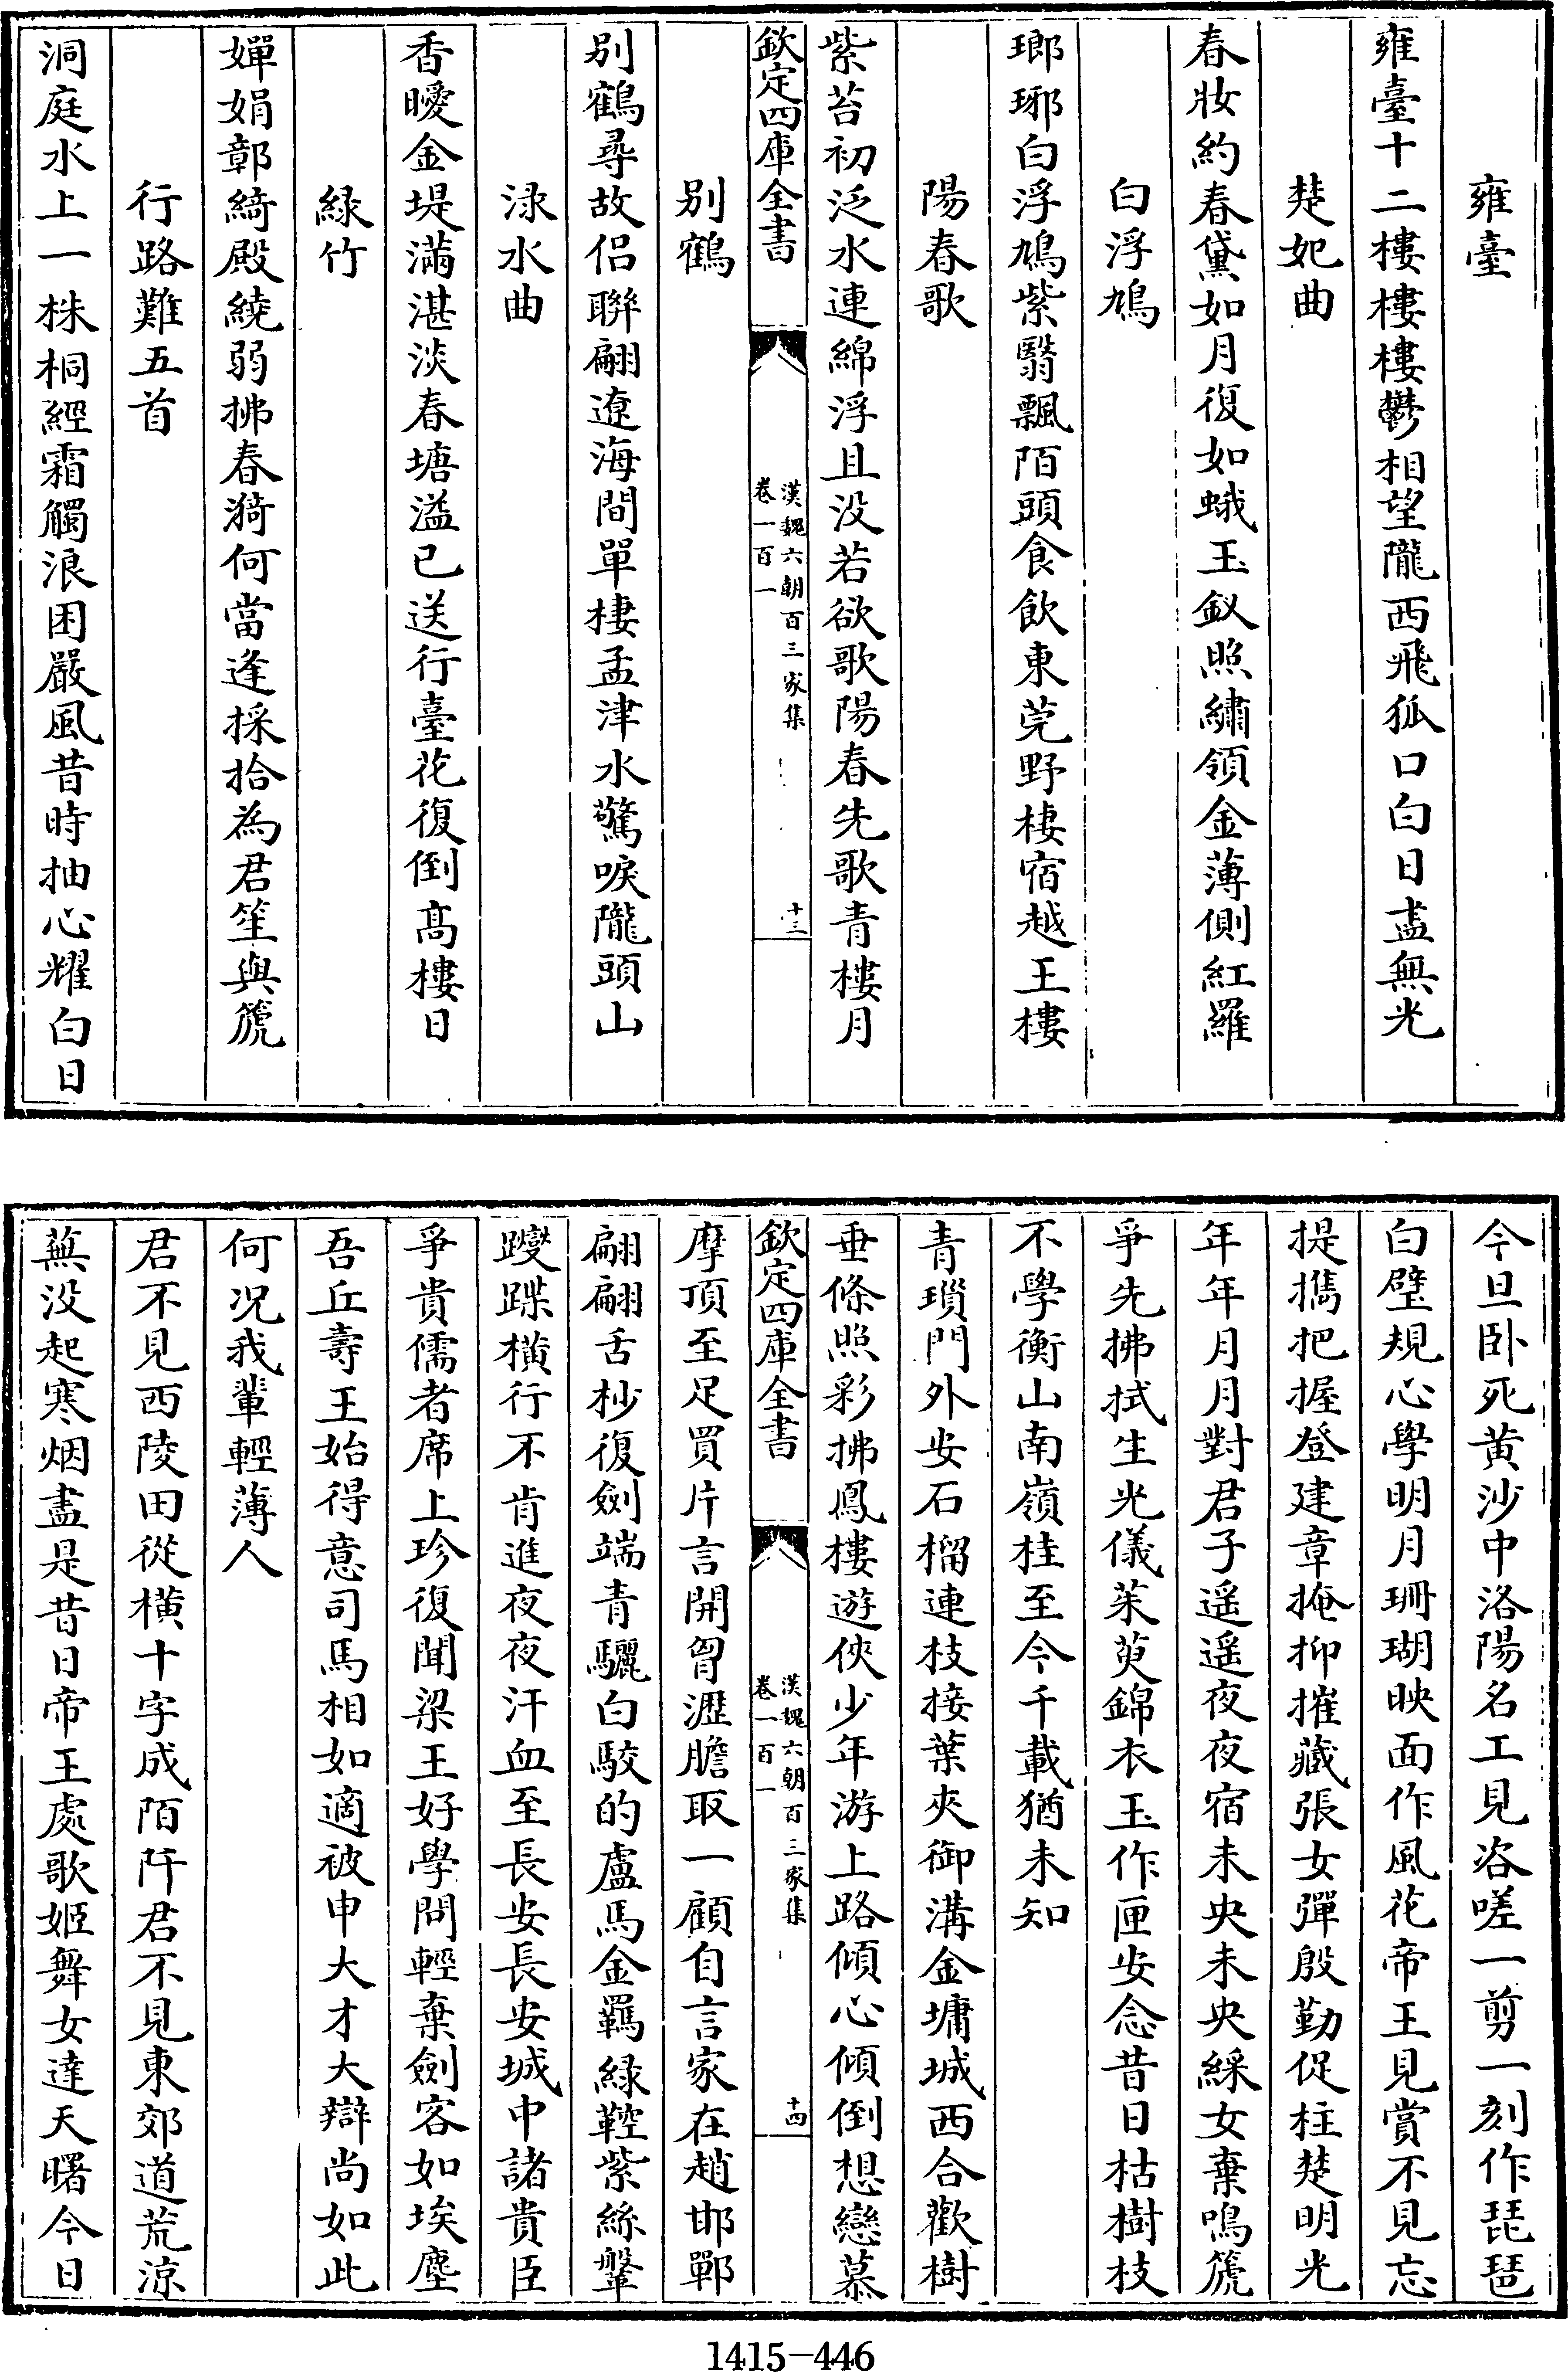 雍臺
雍臺十二樓樓樓鬱相望隴西飛狐口白日盡無光
楚妃曲
春妝約春黛如月復如蛾玉釵照繡領金薄側紅羅
白浮鳩
瑯琊白浮鳩紫翳飄陌頭食飲東莞野棲宿越王樓
陽春歌
紫苔初泛水連綿浮且没若欲歌陽春先歌青樓月
欽定四庫全書
漢魏六朝百三家集
卷一百一
十三
别鶴
别鶴尋故侣聯翩遼海間單棲孟津水驚唳隴頭山
渌水曲
香曖金堤滿湛淡春塘溢已送行臺花復倒髙樓日
緑竹
嬋娟鄣綺殿繞弱拂春漪何當逢採拾為君笙與篪
行路難五首
洞庭水上一株桐經霜觸浪困嚴風昔時抽心耀白日
今旦卧死黄沙中洛陽名工見咨嗟一剪一刻作琵琶
白璧規心學明月珊瑚映面作風花帝王見賞不見忘
提攜把握登建章掩抑摧藏張女彈殷勤促柱楚明光
年年月月對君子遥遥夜夜宿未央未央綵女棄鳴篪
爭先拂拭生光儀茱萸錦衣玉作匣安念昔日枯樹枝
不學衡山南嶺桂至今千載猶未知
青瑣門外安石榴連枝接葉夾御溝金墉城西合歡樹
垂條照彩拂鳳樓遊俠少年游上路傾心傾倒想戀慕
欽定四庫全書
漢魏六朝百三家集
卷一百一
十四
摩頂至足買片言開胷瀝膽取一顧自言家在趙邯鄲
翩翩舌杪復劍端青驪白駮的盧馬金羈緑鞚紫絲鞶
躞蹀横行不肯進夜夜汗血至長安長安城中諸貴臣
爭貴儒者席上珍復聞梁王好學問輕棄劍客如埃塵
吾丘壽王始得意司馬相如適被申大才大辯尚如此
何况我輩輕薄人
君不見西陵田從横十字成陌阡君不見東郊道荒涼
蕪没起寒烟盡是昔日帝王處歌姬舞女達天曙今日
1415-446